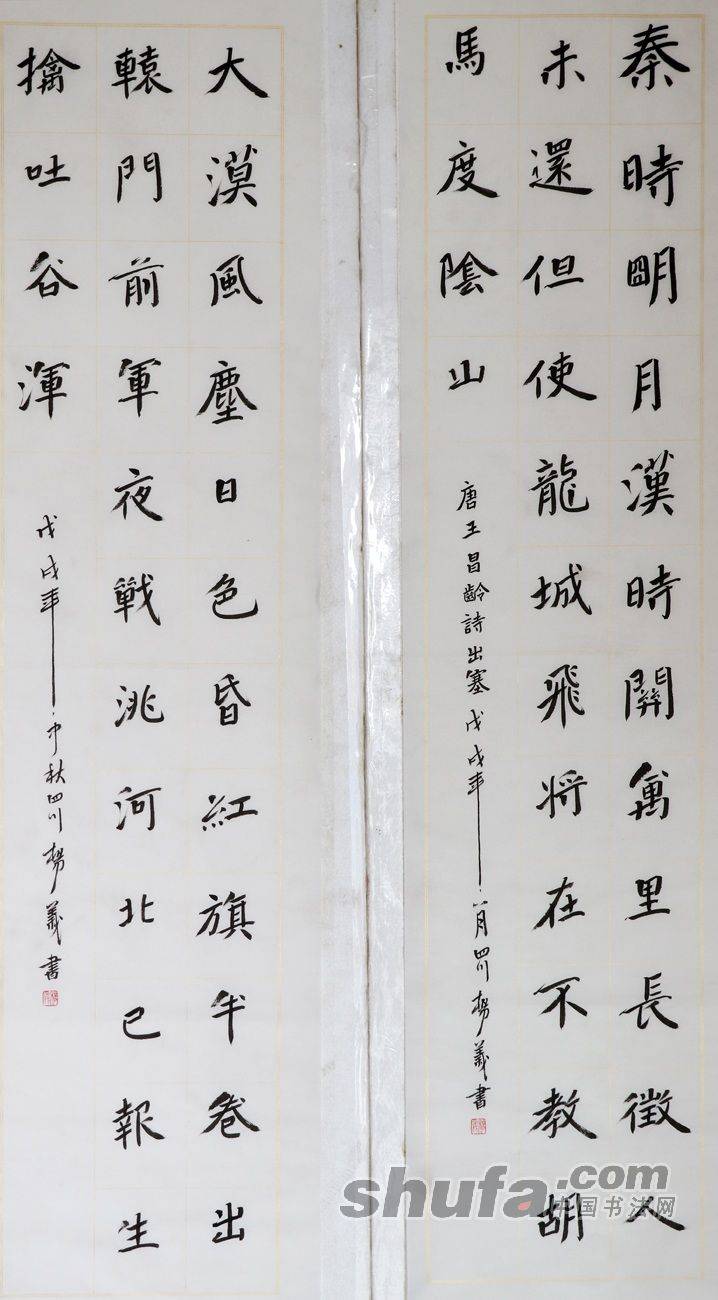 秦時明月漢時關萬里長徵人
未還但使龍城飛将在不教胡
馬度陰山
唐王昌齡詩出塞戊戌年八月四川楊義書
大漠風塵日色昏紅旗半卷出
轅門前軍夜戰洮河北已報生
擒吐谷渾
戊戌年中秋四川楊義書
shufa.com
中国书法网